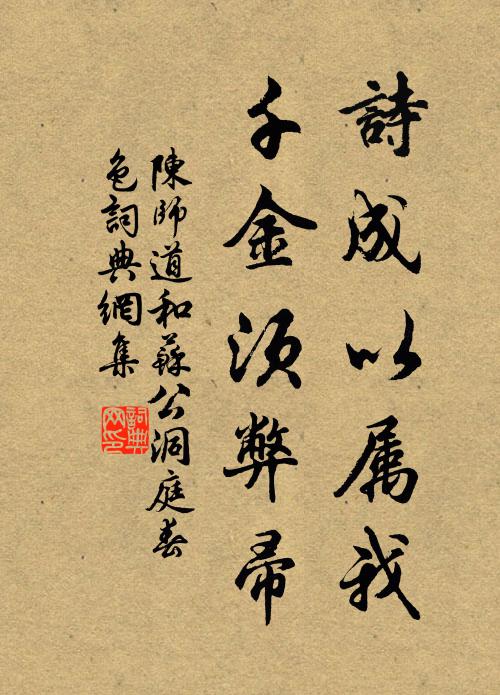 詩成以属我
千金須弊帚
陳師道和蘇公洞庭春
色詞典網集
詞典
网印